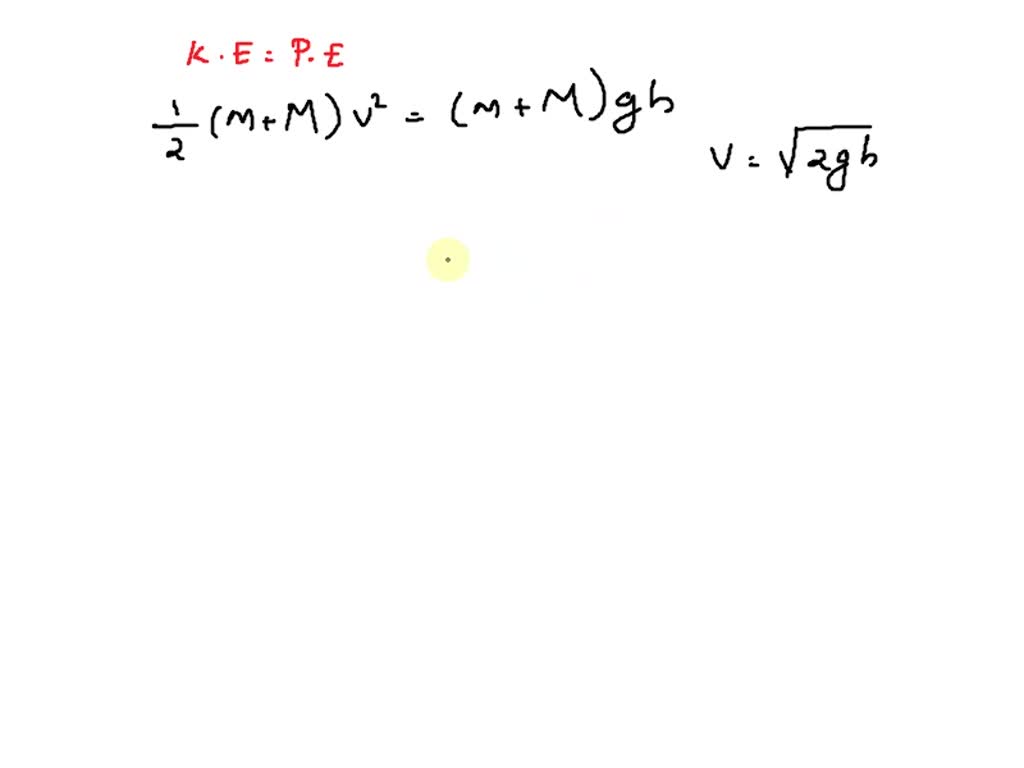 K.E = P.E
1/2 (m+M) v² = (m+M) gh
v = √2gh